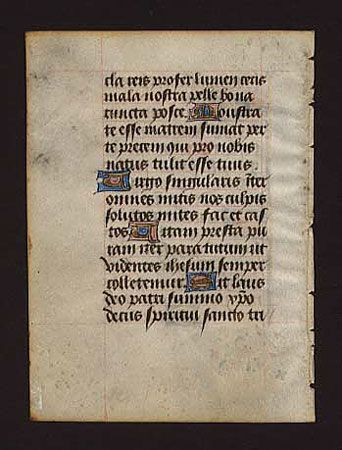 cla reis profer lumen cecis
mala nostra pelle bona
cuncta posce. Monstra
te esse matrem sumat per
te precem qui pro nobis
natus tulit esse tuus.
Virgo singularis inter
omnes mitis nos culpis
solutos mites fac et cas
tos Vitam presta pu
ram iter para tutum ut
videntes ihesum semper
colletemur. Sit laus
deo patri summo xpo
decus spiritui sancto tri